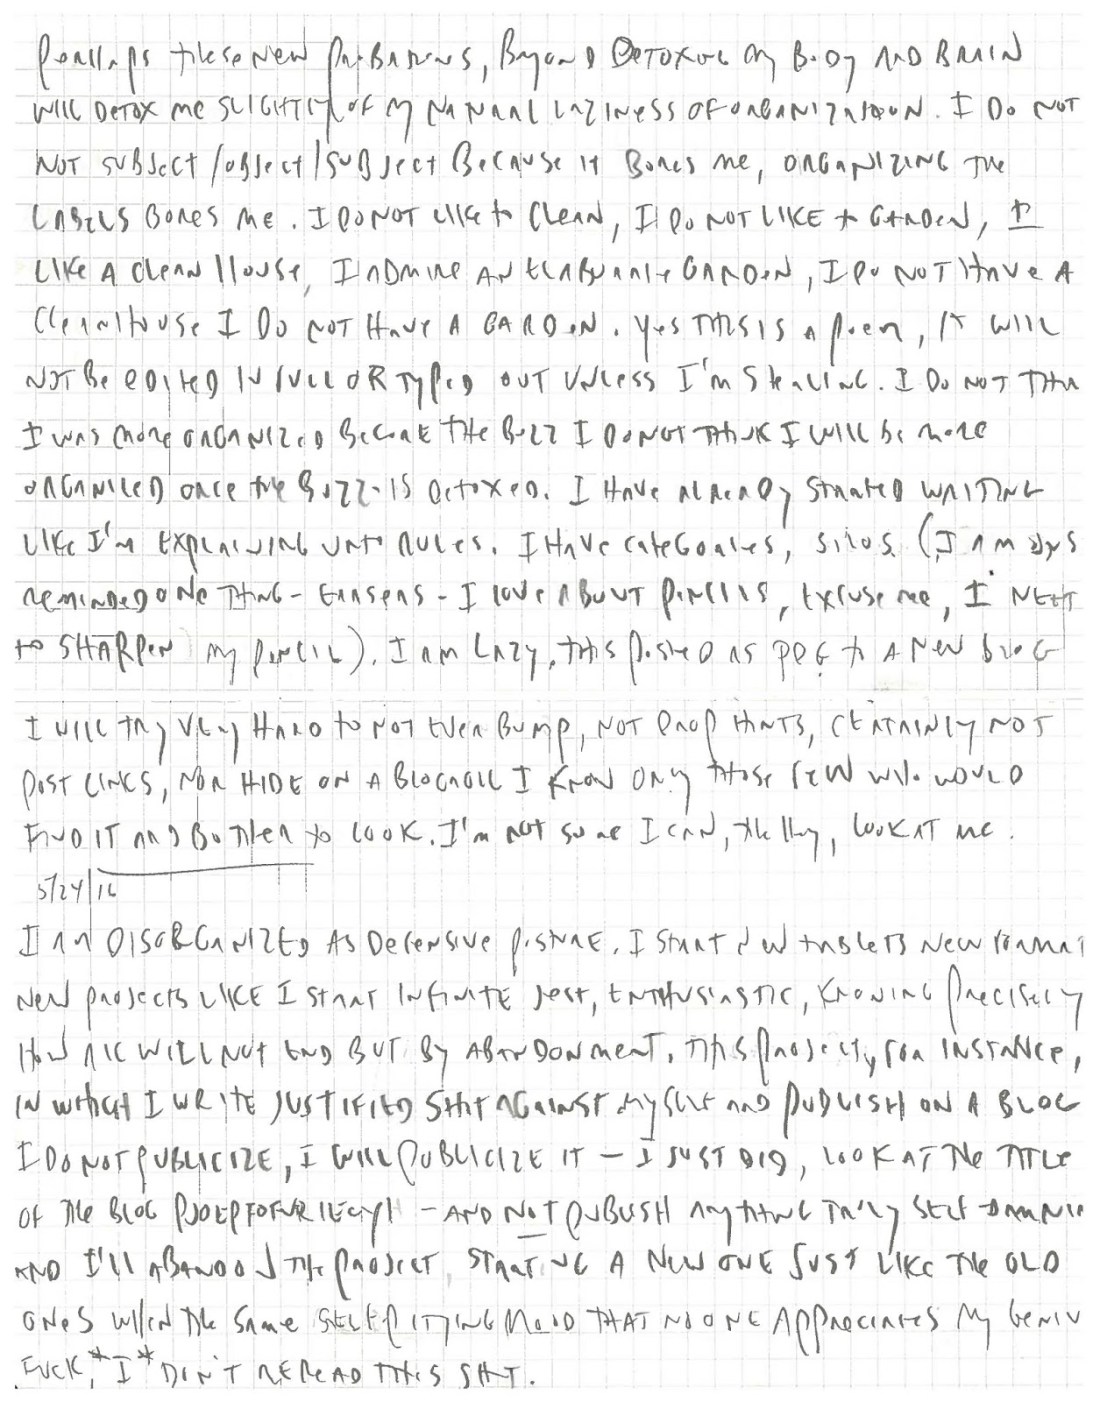 Perhaps these new, Beyond Detoxing my Body AND BRAIN
WILL DETOX me SLIGHTLY OF MY NATURAL LAZINESS OF ORGANIZATION. I DO NOT
NOT SUBJECT/OBJECT/SUBJECT BECAUSE IT BORES me, ORGANIZING THE
LABELS BORES ME. I DO NOT LIKE to CLEAN, I DO NOT LIKE to GARDEN, I
LIKE A CLEAN HOUSE, I ADMIRE AN ELABORATE GARDEN, I DO NOT HAVE A
CLEAN HOUSE I DO NOT HAVE A GARDEN. Yes THIS IS A POEM, IT WILL
NOT BE EDITED IN FULL OR TYPED OUT UNLESS I'm STEALING. I DO NOT
I WAS more ORGANIZED BEFORE THE BUZZ I DO NOT THINK I WILL be more
ORGANIZED ONCE the BUZZ IS DETOXED. I HAVE ALREADY STARTED WRITING
LIKE I'm EXPLAINING RULES. I HAVE CATEGORIES, SILOS. (I AM
REMINDED ONE THING - ERASERS - I love ABOUT PENCILS, EXCUSE me, I NEED
to SHARPEN my PENCIL). I am LAZY, this posted as to A NEW BLOG
I WILL TRY VERY HARD to NOT EVEN BUMP, NOT DROP HINTS, CERTAINLY NOT
POST LINKS, NOR HIDE ON A BLOGROLL I KNOW ONLY those FEW who WOULD
FIND IT AND BOTHER to LOOK. I'm NOT SURE I CAN, LOOK AT me.
5/24/16
I AM DISORGANIZED AS DEFENSIVE POSTURE. I START NEW TABLETS NEW FORMAT
NEW PROJECTS LIKE I START INFINITE JEST, ENTHUSIASTIC, KNOWING PRECISELY
HOW ALL WILL NOT END BUT BY ABANDONMENT. THIS PROJECT, FOR INSTANCE,
IN WHICH I WRITE JUSTIFIED SHIT AGAINST MYSELF AND PUBLISH ON A BLOG
I DO NOT PUBLICIZE, I WILL PUBLICIZE IT - I JUST DID, LOOK AT THE TITLE
OF THE BLOG - AND NOT PUBLISH ANYTHING TRULY SELF
AND I'll ABANDON THE PROJECT, STARTING A NEW ONE JUST LIKE THE OLD
ONES W/IN THE SAME SELF PITYING MOOD THAT NO ONE APPRECIATES MY GENIU
FUCK, *I* DON'T REREAD THIS SHIT.